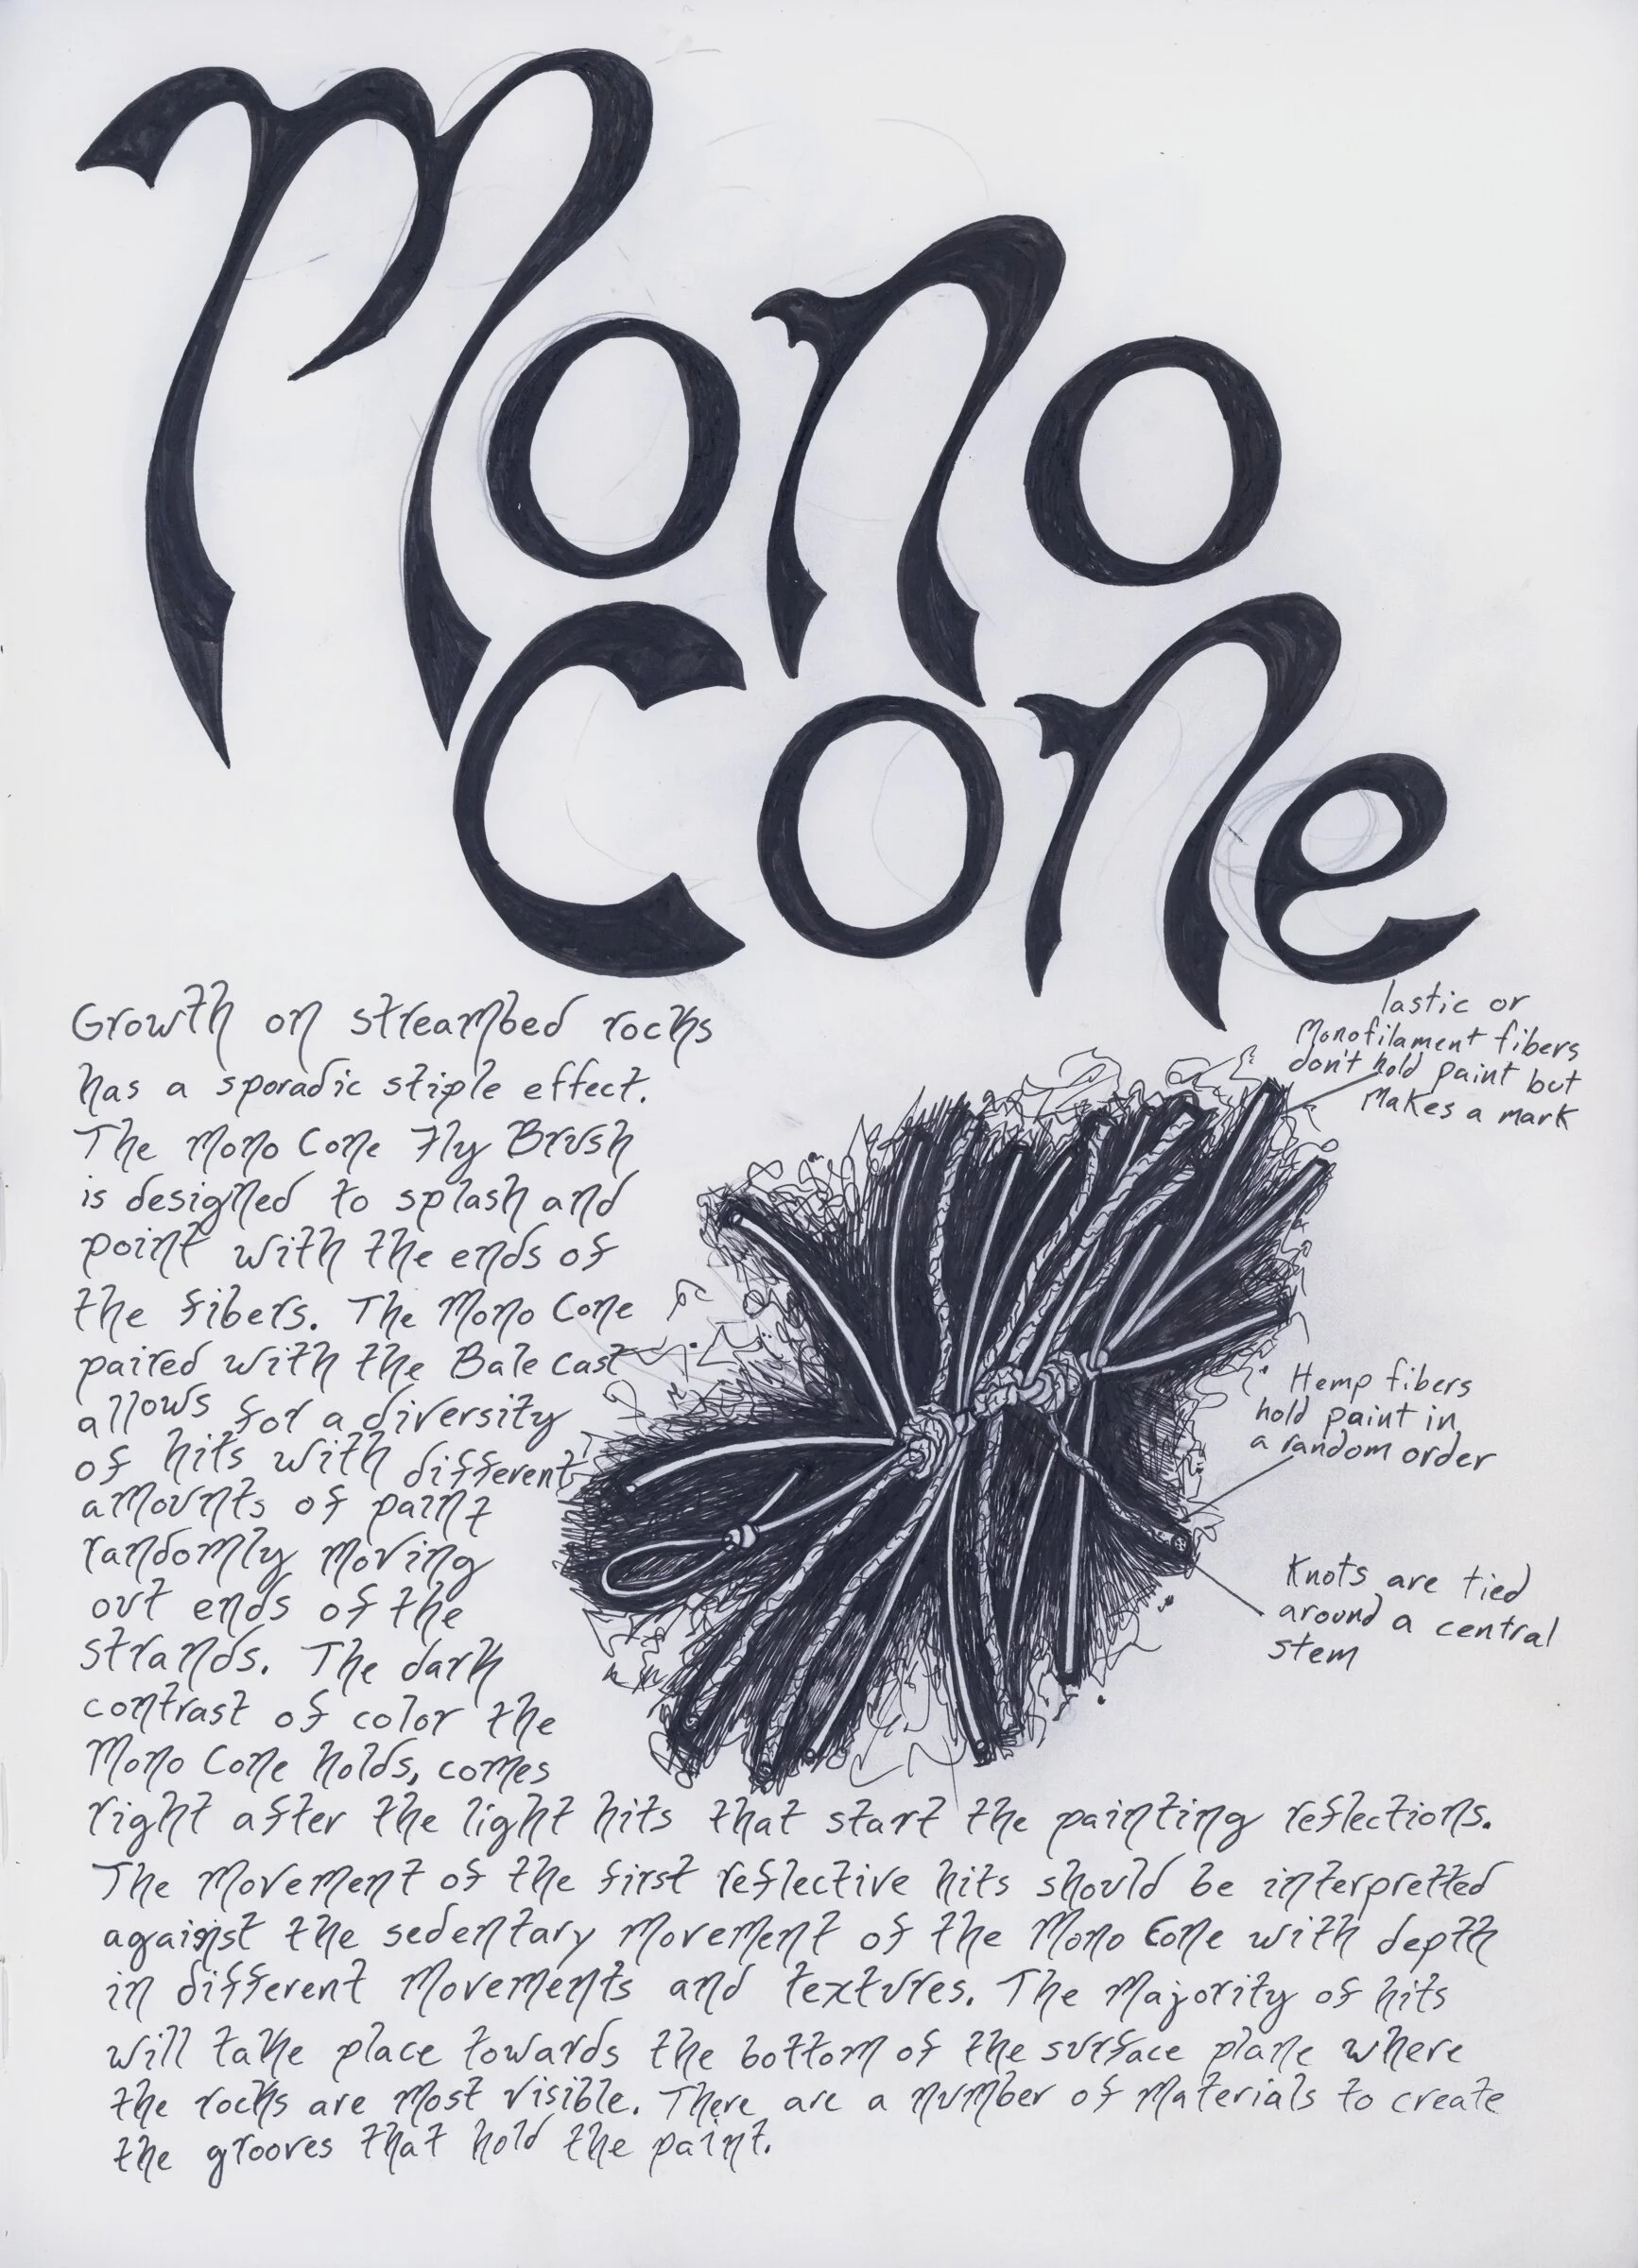 Mono
Cone
Growth on streambed rocks
has a sporadic stiple effect.
The Mono Cone Fly Brush
is designed to splash and
point with the ends of
the fibers. The Mono Cone
paired with the Bale Cast
allows for a diversity
of hits with different
amounts of paint
randomly moving
out ends of the
strands. The dark
contrast of color the
Mono Cone holds, comes
right after the light hits that start the painting reflections.
The movement of the first reflective hits should be interpretted
against the sedentary movement of the Mono Cone with depth
in different movements and textures. The majority of hits
will take place towards the bottom of the surface plane where
the rocks are most visible. There are a number of materials to create
the grooves that hold the paint.
lastic or
Monofilament fibers
don't hold paint but
makes a mark
Hemp fibers
hold paint in
a random order
Knots are tied
around a central
stem